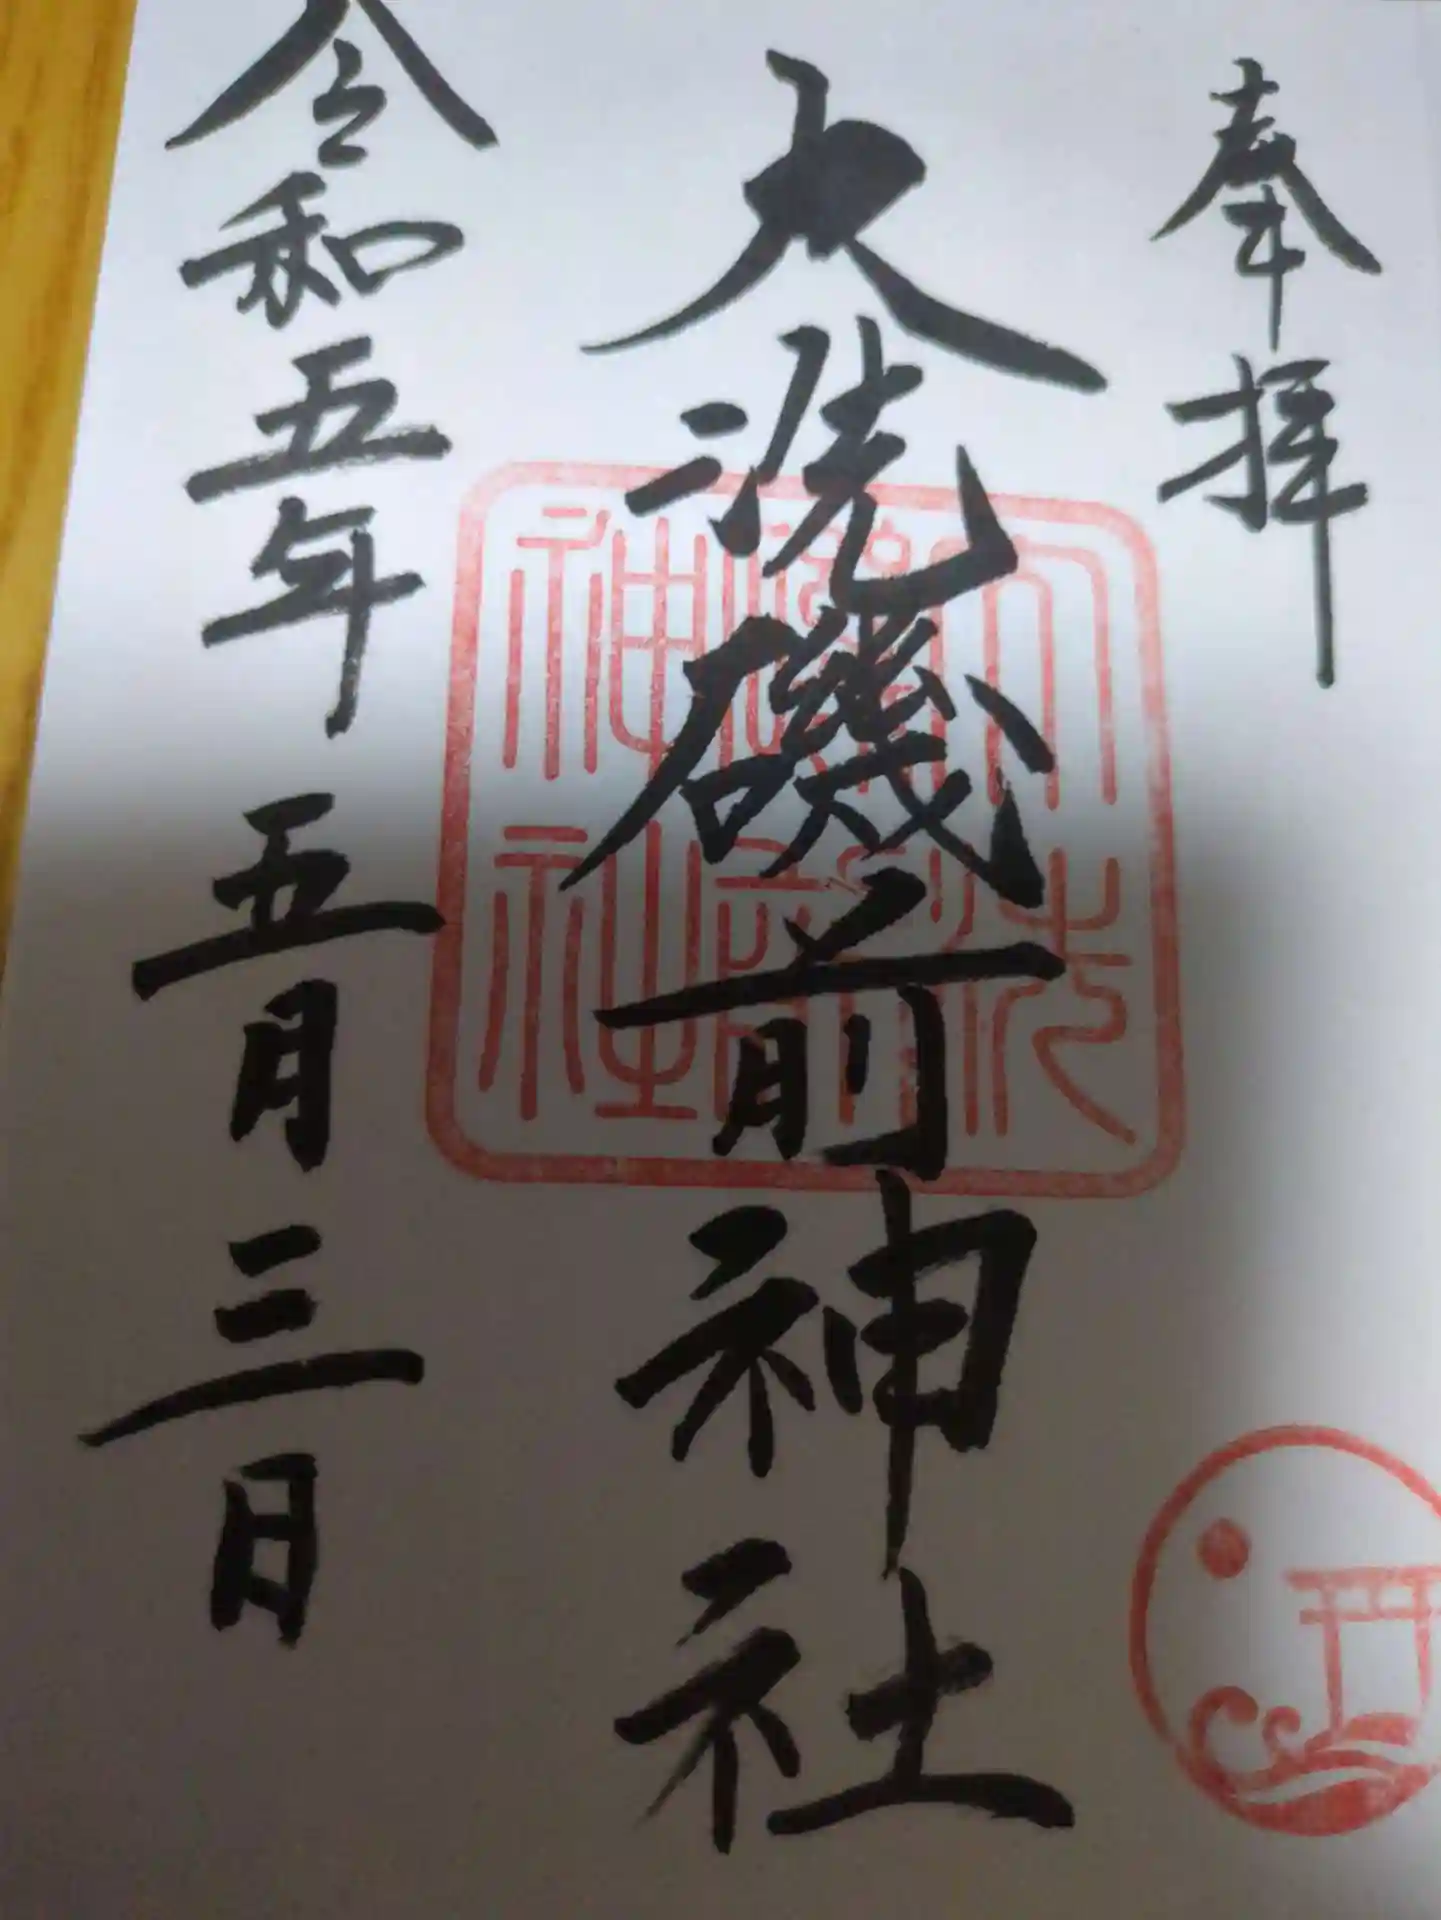 奉拝
大洗磯前神社
大洗
磯前
神社
令和五年 五月三日